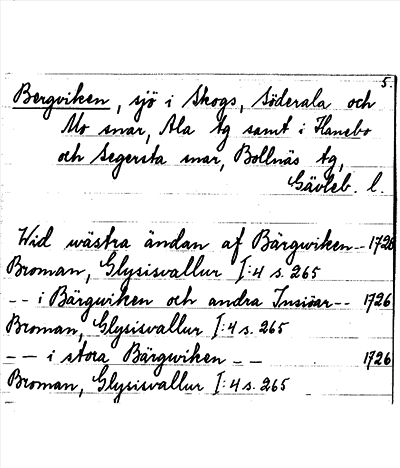 5.
Bergviken, sjö i Skogs, Söderala och
Mo snar, Ala tg samt i Hanebo
och Segersta snar, Bollnäs tg,
Gävleb. l.
Wid wästra ändan af Bärgwiken -- 1726
Broman, Glysisvallur I:4 s. 265
-- i Bärgwiken och andra Insiöar -- 1726
Broman, Glysisvallur I:4 s. 265
-- i stora Bärgwiken -- 1726
Broman, Glysisvallur I:4 s. 265